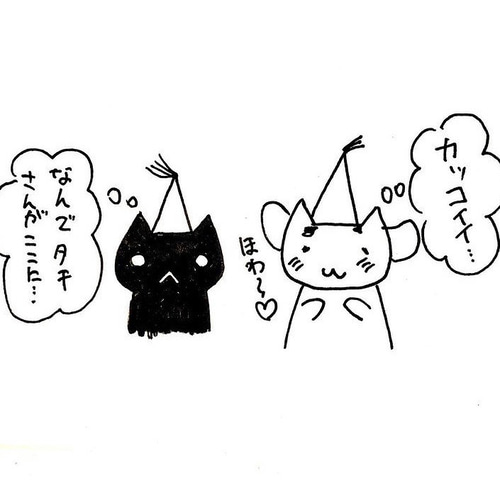 カッコイイ…
ほわ〜♡
なんでタキ
さんがここに…